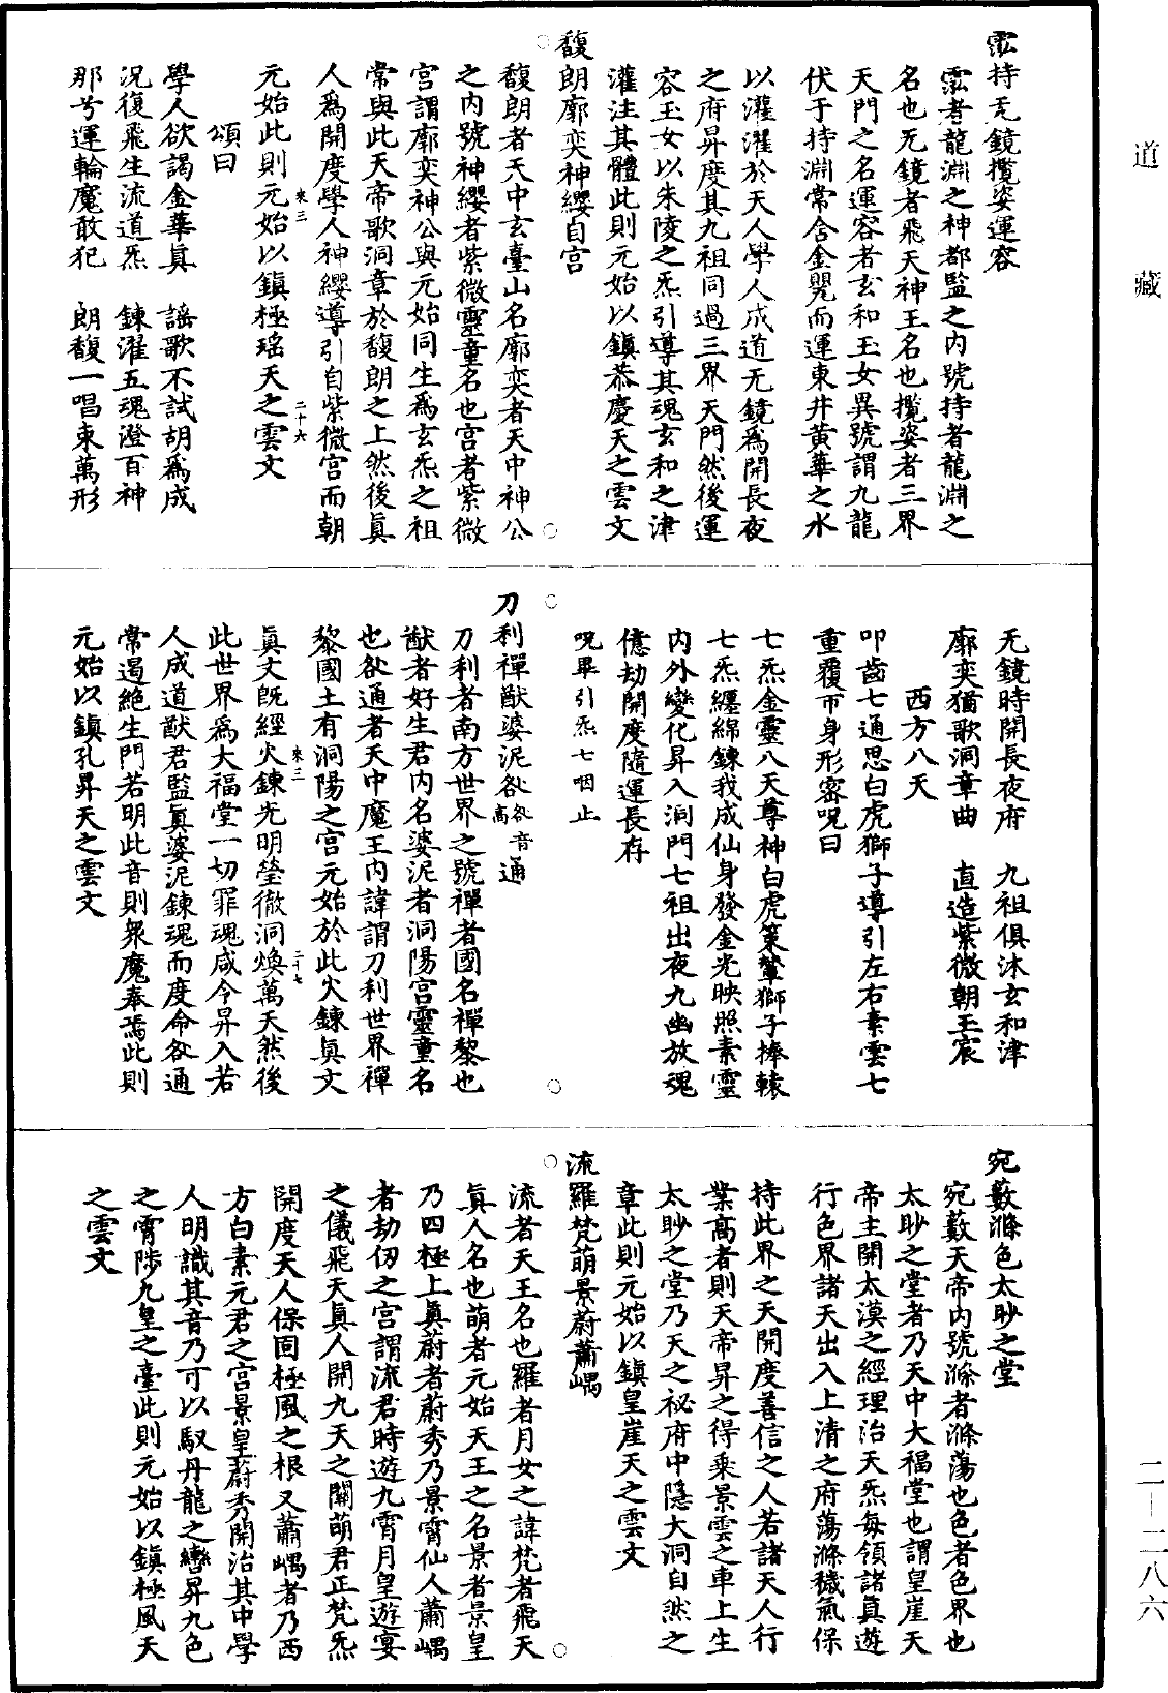 道藏
二—二八六
霐持无鏡攬姿運容
霐者龍淵之神都監之內號持者龍淵之
名也无鏡者飛天神王名也攬姿者三界
天門之名運容者玄和玉女異號謂九龍
伏于持淵常含金甖而運東井黃華之水
以灌濯於天人學人成道无鏡爲開長夜
之府昇度其九祖同過三界天門然後運
容玉女以朱陵之炁引導其魂玄和之津
灌注其體此則元始以鎮恭慶天之雲文
馥朗廓奕神纓自宮
馥朗者天中玄臺山名廓奕者天中神公
之內號神纓者紫微靈童名也宮者紫微
宮謂廓奕神公與元始同生爲玄炁之祖
常與此天帝歌洞章於馥朗之上然後眞
人爲開度學人神纓導引自紫微宮而朝
來三　二十六
元始此則元始以鎮極瑤天之雲文
頌曰
學人欲謁金華眞　謠歌不試胡爲成
況復飛生流道炁　鍊濯五魂澄百神
那兮運輪魔敢犯　朗馥一唱束萬形
无鏡時開長夜府　九祖俱沐玄和津
廓奕猶歌洞章曲　直造紫微朝玉宸
西方八天
叩齒七通思白虎獅子導引左右素雲七
重覆帀身形密呪曰
七炁金靈八天尊神白虎策輦獅子捧轅
七炁纒綿鍊我成仙身發金光映照素靈
內外變化昇入洞門七祖出夜九幽放魂
億劫開度隨運長存
呪畢引炁七咽止
刀利禪猷婆泥咎咎音高通
刀利者南方世界之號禪者國名禪黎也
猷者好生君內名婆泥者洞陽宮靈童名
也咎通者天中魔王內諱謂刀利世界禪
黎國土有洞陽之宮元始於此火鍊眞文
來三　二十七
眞文旣經火鍊光明瑩徹洞煥萬天然後
此世界爲大福堂一切罪魂咸令昇入若
人成道猷君監眞婆泥鍊魂而度命咎通
常遏絕生門若明此音則衆魔奉焉此則
元始以鎮孔昇天之雲文
宛藪滌色太眇之堂
宛藪天帝內號滌者滌蕩也色者色界也
太眇之堂者乃天中大福堂也謂皇崖天
帝主開太漠之經理治天炁每領諸眞遊
行色界諸天出入上清之府蕩滌穢氣保
持此界之天開度善信之人若諸天人行
業高者則天帝昇之得乘景雲之車上生
太眇之堂乃天之祕府中隱大洞自然之
章此則元始以鎮皇崖天之雲文
流羅梵萌景蔚蕭嵎
流者天王名也羅者月女之諱梵者飛天
眞人名也萌者元始天王之名景者景皇
乃四極上眞蔚者蔚秀乃景霄仙人蕭嵎
者劫仞之宮謂流君時遊九霄月皇遊宴
之儀飛天眞人開九天之關萌君正梵炁
開度天人保固極風之根又蕭嵎者乃西
方白素元君之宮景皇蔚秀開治其中學
人明識其音乃可以馭丹龍之轡昇九色
之霄陟九皇之臺此則元始以鎮極風天
之雲文